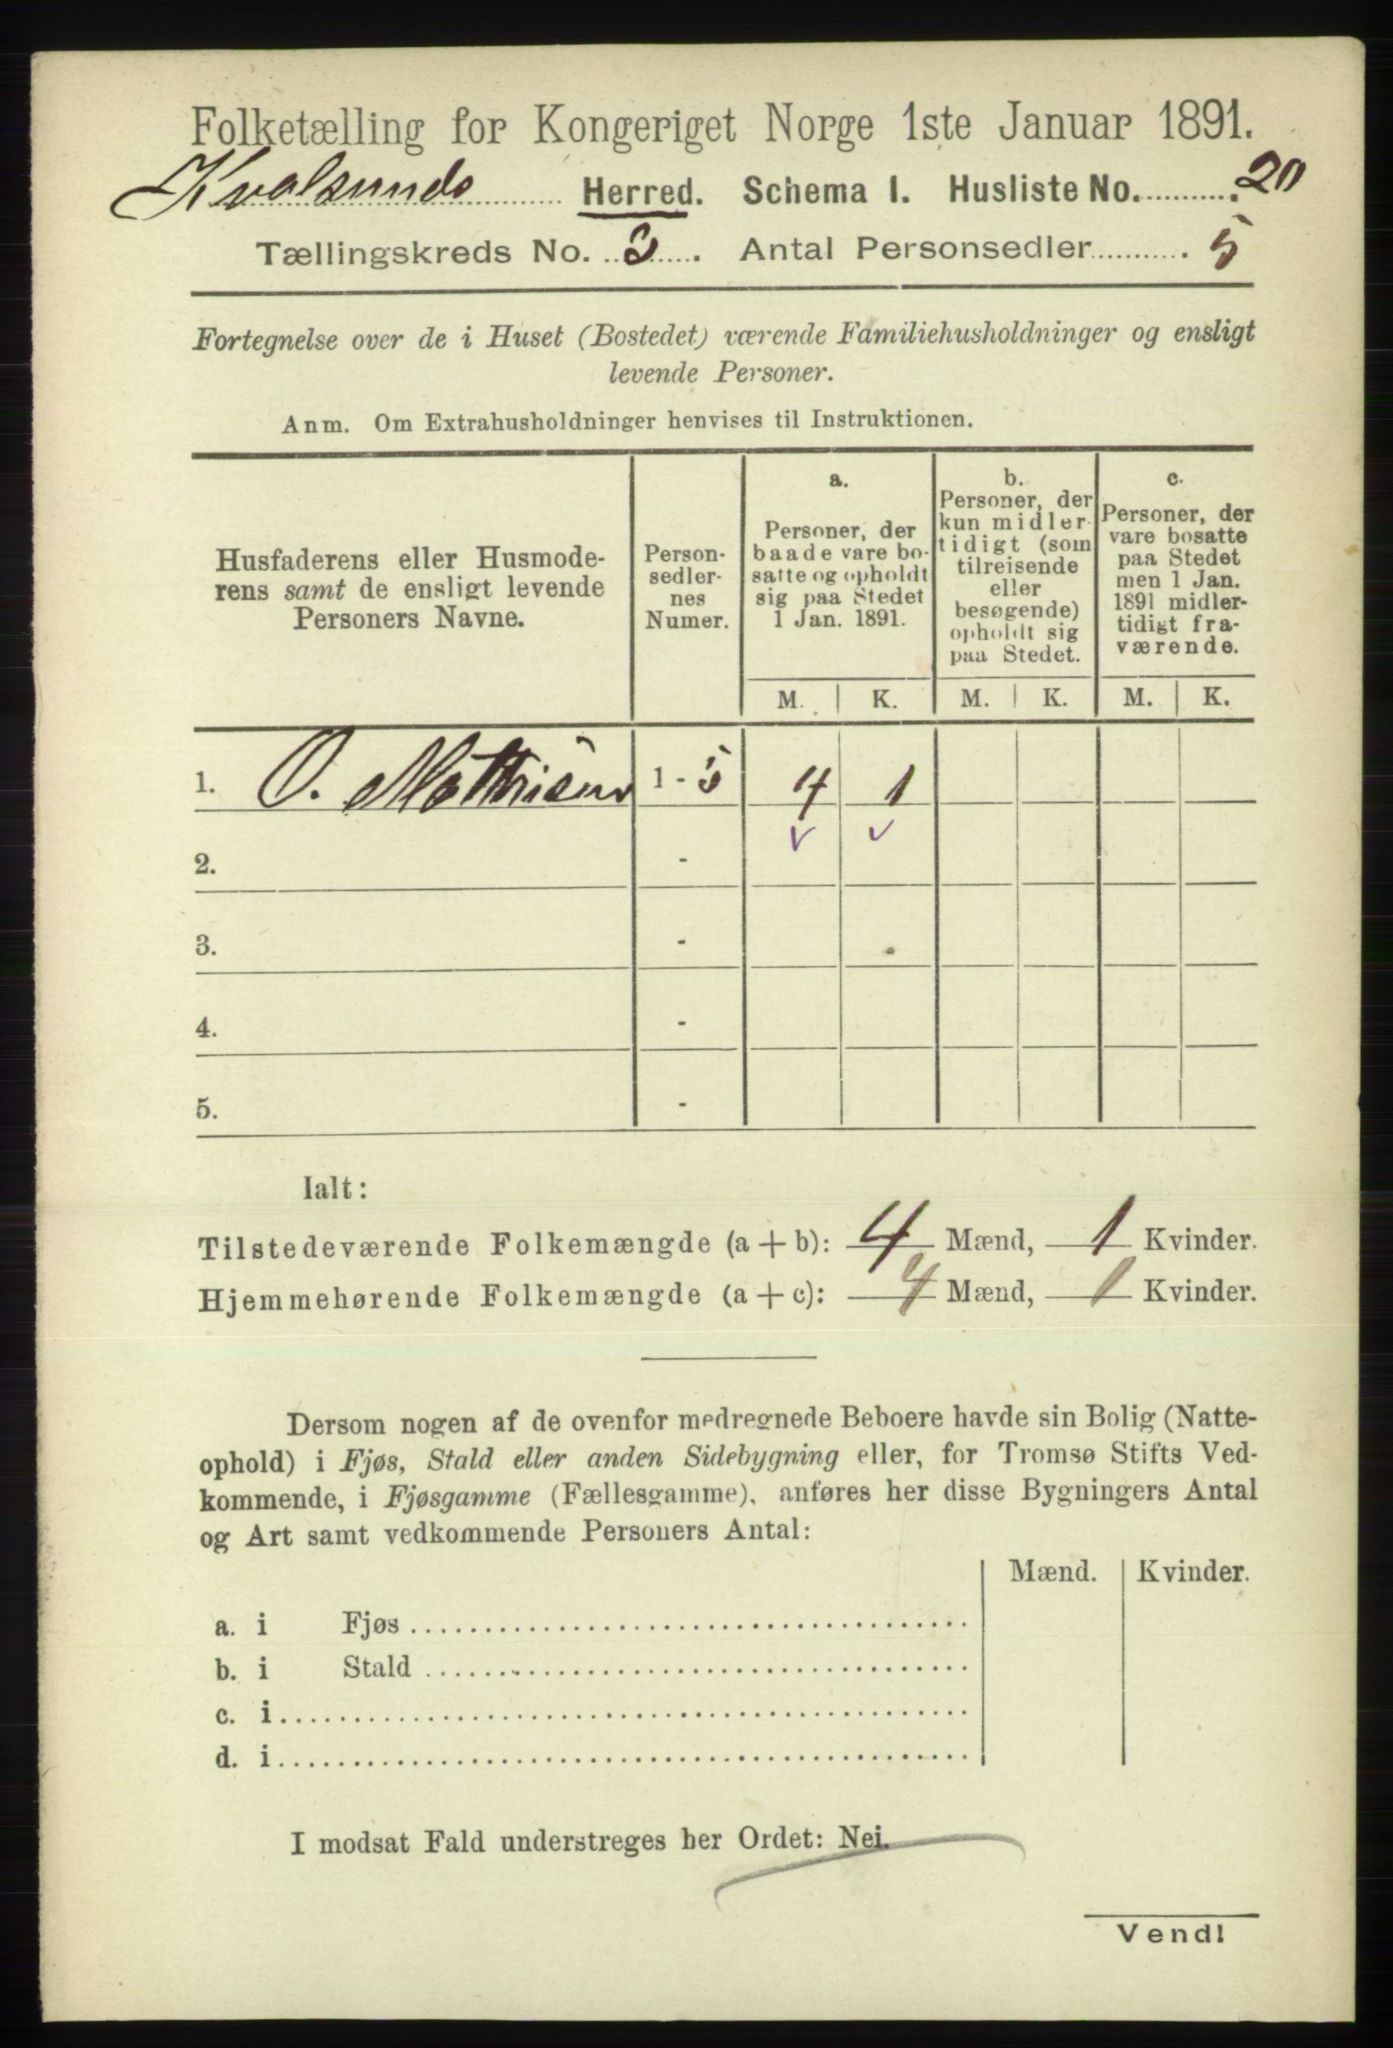 Folketælling for Kongeriget Norge 1ste Januar 1891.
Kvalsunds Herred. Schema I. Husliste No. 20
Tællingskreds No. 3. Antal Personsedler 5
Fortegnelse over de i Huset (Bostedet) værende Familiehusholdninger og ensligt
levende Personer.
Anm. Om Extrahusholdninger henvises til Instruktionen.
Husfaderens eller Husmode-
rens samt de ensligt levende
Personers Navne.
Person-
sedler-
nes
Numer.
a.
Personer, der
baade vare bo-
satte og opholdt
sig paa Stedet
1 Jan. 1891.
b.
Personer, der
kun midler-
tidigt (som
tilreisende
eller
besøgende)
opholdt sig
paa Stedet.
c.
Personer, der
vare bosatte
paa Stedet
men 1 Jan.
1891 midler-
tidigt fra-
værende.
M. K. M. K. M. K.
1. O. Mathisen 1 - 5 4 1
2. -
3. -
4. -
5. -
Ialt:
Tilstedeværende Folkemængde (a + b): 4 Mænd, 1 Kvinder.
Hjemmehørende Folkemængde (a + c): 4 Mænd, 1 Kvinder.
Dersom nogen af de ovenfor medregnede Beboere havde sin Bolig (Natte-
ophold) i Fjøs, Stald eller anden Sidebygning eller, for Tromsø Stifts Ved-
kommende, i Fjøsgamme (Fællesgamme), anføres her disse Bygningers Antal
og Art samt vedkommende Personers Antal:
Mænd. Kvinder.
a. i Fjøs
b. i Stald
c. i
d. i
I modsat Fald understreges her Ordet: Nei.
Vend!